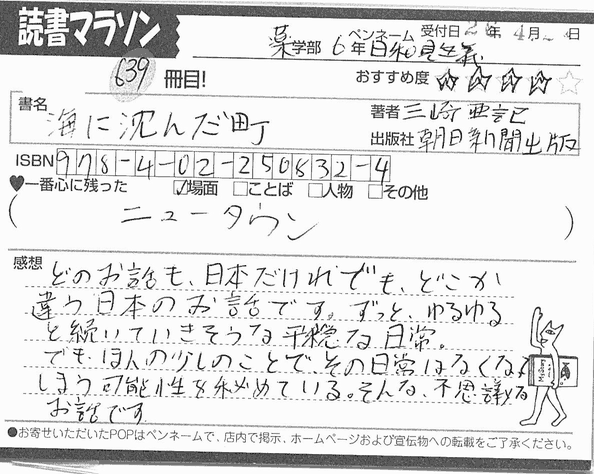 読書マラソン
薬学部 6年 ペンネーム 日和見主義 受付日 年 4月 日
639 冊目!
おすすめ度 ★★★★☆
書名 海に沈んだ町
著者 三崎亜記
出版社 朝日新聞出版
ISBN 978-4-02-250832-4
♥一番心に残った ☑場面 □ことば □人物 □その他
( ニュータウン )
感想 どのお話も、日本だけれでも、どこか
違う日本のお話です。ずっと、ゆるゆる
と続いていきそうな平穏な日常。
でも、ほんの少しのことで、その日常はなくなって
しまう可能性を秘めている。そんな、不思議な
お話です
●お寄せいただいたPOPはペンネームで、店内で掲示、ホームページおよび宣伝物への転載をご了承ください。